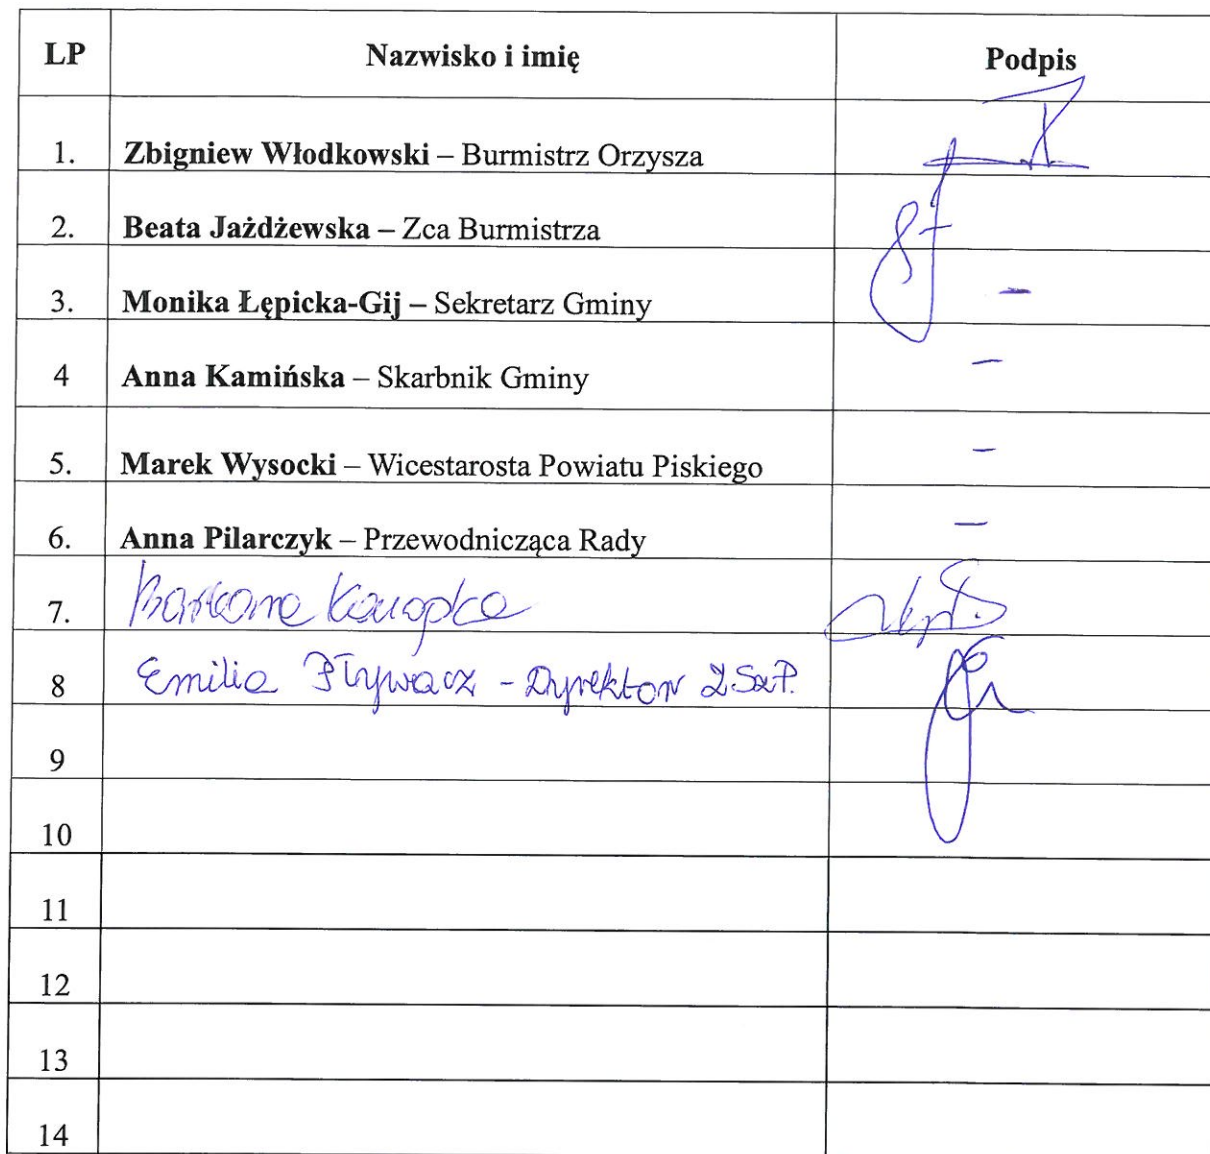 LP Nazwisko i imię Podpis
1. Zbigniew Włodkowski – Burmistrz Orzysza
2. Beata Jażdżewska – Zca Burmistrza
3. Monika Łępicka-Gij – Sekretarz Gminy –
4 Anna Kamińska – Skarbnik Gminy –
5. Marek Wysocki – Wicestarosta Powiatu Piskiego –
6. Anna Pilarczyk – Przewodnicząca Rady –
7. Konopka
8 Emilia Pływacz - Dyrektor ZSzP.
9
10
11
12
13
14